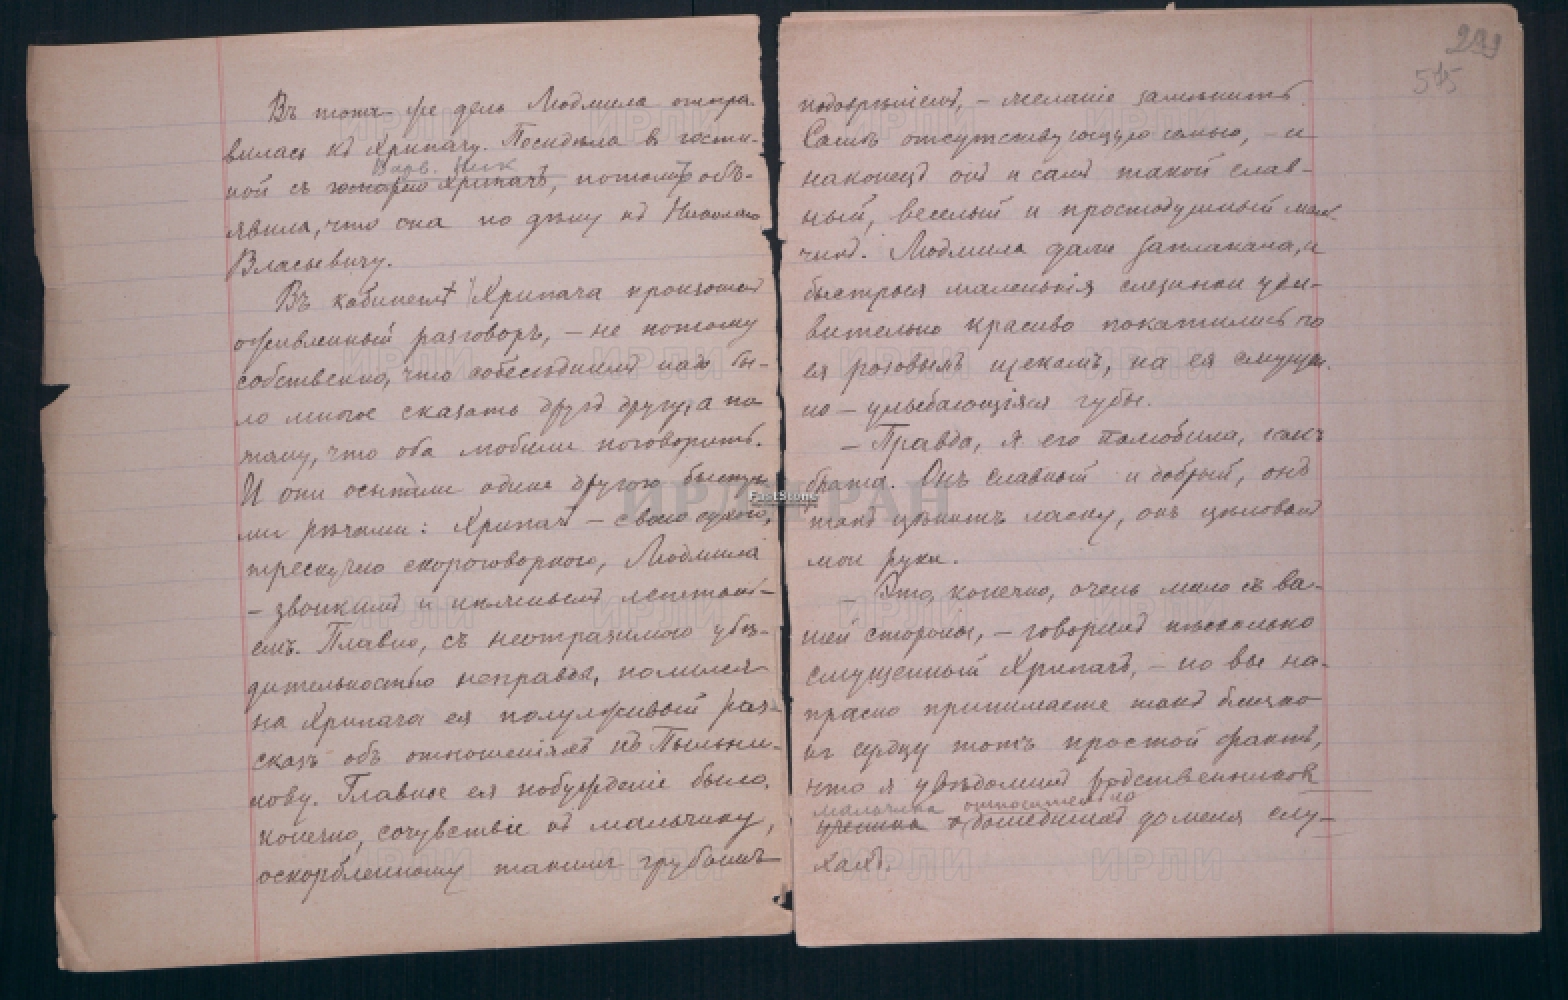 Въ тотъ же день Людмила отпра-
вилась къ Хрипачу. Посидѣла в гости-
Варв. Ник
ной съ Хрипачъ, потомъ объ-
явила, что она по дѣлу къ Николаю
Власьевичу.
Въ кабинетѣ Хрипача произошелъ
оживленный разговоръ, – не потому
собственно, что собесѣдникамъ надо бы-
ло многое сказать другъ другу, а по
тому, что оба любили поговорить.
И они осыпали одинъ другого быстры
ми рѣчами: Хрипачъ – своею сухою,
трескучею скороговоркою, Людмила
– звонкимъ и нѣжнымъ лепетань-
емъ. Плавно, съ неотразимою убѣ-
дительностью неправды, полился
на Хрипача ея полулживый раз-
сказъ объ отношеніяхъ къ Пыльни-
кову. Главное ея побужденіе было,
конечно, сочувствіе къ мальчику,
оскорбленному такимъ грубымъ
293
515
подозрѣніемъ, – желаніе замѣнить
Сашѣ отсутствующую семью, – и
наконецъ онъ и самъ такой слав-
ный, веселый и простодушный маль-
чикъ. Людмила даже заплакала, и
быстрыя маленькія слезинки уди-
вительно красиво покатились по
ея розовымъ щекамъ, на ея смущен-
но – улыбающіяся губы.
– Правда, я его полюбила, какъ
брата. Онъ славный и добрый, онъ
такъ цѣнитъ ласку, онъ цѣловалъ
мои руки.
– Это, конечно, очень мило съ ва-
шей стороны, – говорилъ нѣсколько
смущенный Хрипачъ, – но вы на-
прасно принимаете такъ близко
къ сердцу тотъ простой фактъ,
что я увѣдомилъ родственниковъ
мальчика относительно
ученика о дошедшихъ до меня слу-
хахъ.
ИРЛИ РАН
FastStone